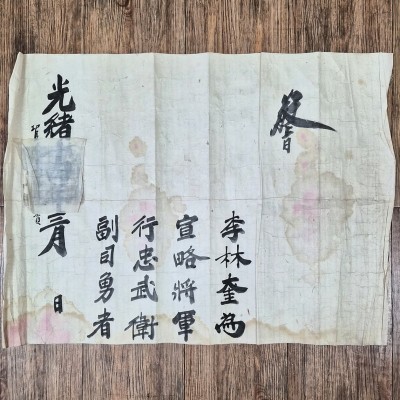 李林奎為
宣略將軍
行忠武衛
副司勇者
光緒
三月
日